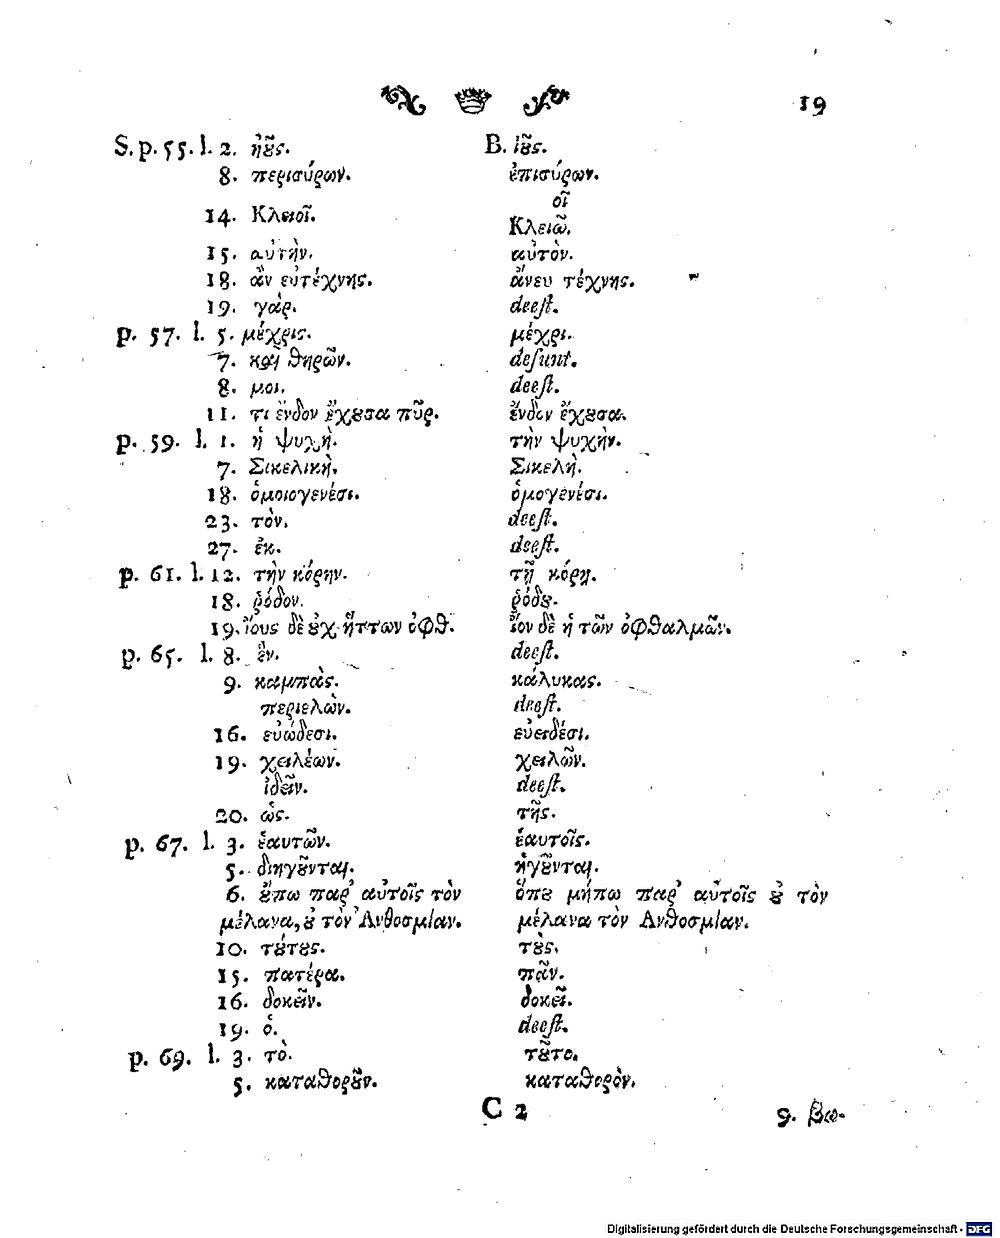 19
S. p. 55. l. 2. ἠȣ͂ς. B. ἰȣ͂ς.
8. περισύρων. ἐπισύρων.
οῖ
14. Κλειοῖ. Κλειῶ.
15. αὐτὴν. αὐτὸν.
18. ἂν εὐτέχνης. ἄνευ τέχνης.
19. γάρ. deeſt.
p. 57. l. 5. μέχρις. μέχρι.
7. καὶ θηρῶν. deſunt.
8. μοι. deeſt.
11. τι ἔνδον ἔχȣσα πῦρ. ἔνδον ἔχȣσα.
p. 59. l. 1. ἡ ψυχὴ. τὴν ψυχὴν.
7. Σικελικὴ. Σικελὴ.
18. ὁμοιογενέσι. ὁμογενέσι.
23. τὸν. deeſt.
27. ἐκ. deeſt.
p. 61. l. 12. τὴν κόρην. τῇ κόρῃ.
18. ῥόδον. ῥόδȣ.
19. ἴους δὲ ȣ̓χ ἥττων ὀφθ. ἴον δὲ ἡ τῶν ὀφθαλμῶν.
p. 65. l. 8. ἓν. deeſt.
9. καμπὰς. κάλυκας.
περιελὼν. deeſt.
16. εὐώδεσι. εὐειδέσι.
19. χειλέων. χειλῶν.
ἰδεῖν. deeſt.
20. ὡς. τῆς.
p. 67. l. 3. ἑαυτῶν. ἑαυτοῖς.
5. διηγȣ͂νται. ἡγȣ͂νται.
6. ȣ̓́πω παρ' αὐτοῖς τὸν ὅπȣ μήπω παρ' αὐτοῖς ȣ̓ τὸν
μέλανα, ȣ̓ τὸν Ἀνθοσμίαν. μέλανα τὸν Ἀνθοσμίαν.
10. τȣ́τȣς. τȣ̀ς.
15. πατέρα. πᾶν.
16. δοκεῖν. δοκεῖ.
19. ὁ. deeſt.
p. 69. l. 3. τὸ. τȣ͂το.
5. καταθορȣ͂ν. καταθορὸν.
C 2 9. βω-
Digitalisierung gefördert durch die Deutsche Forschungsgemeinschaft - DFG